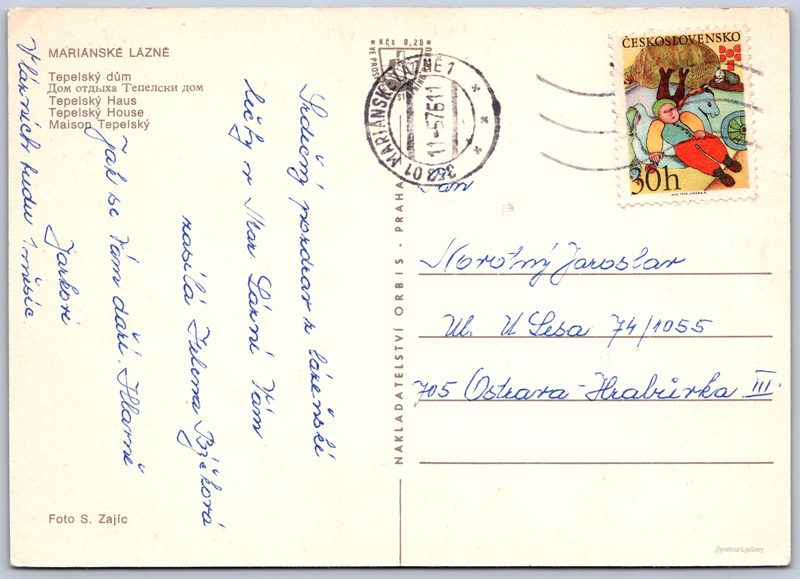 MARIÁNSKÉ LÁZNĚ
Tepelský dům
Дом отдыха Тепелски дом
Tepelský Haus
Tepelský House
Maison Tepelský
Srdečný pozdrav z lázeňské
léčby v Mar. Lázní Vám
zasílá Zelena
Jak se Vám daří. Hlavně
Jarkovi
V lázních budu 1 měsíc.
Foto S. Zajíc
NAKLADATELSTVÍ ORBIS - PRAHA
Kčs 0,20
MARIÁNSKÉ LÁZNĚ 1
11.-5.76 11
353 01
ČESKOSLOVENSKO
30h
Pan
Novotný Jaroslav
Ul. U Lesa 74/1055
705 Ostrava-Hrabůvka III.
@postcard.gallery